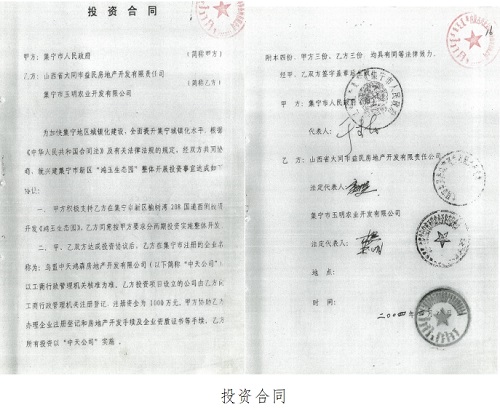 投资合同
甲方：集宁市人民政府 （简称甲方）
乙方：山西省大同市益民房地产开发有限责任公司
（简称乙方）
集宁市玉明农业开发有限公司
为加快集宁地区城镇化建设，全面提升集宁城镇化水平，根据
《中华人民共和国合同法》及有关法律法规的规定，经双方共同协
商，就兴建集宁市新区“鸿玉生态园”整体开展投资事宜达成如下
一、甲方积极支持乙方在集宁市新区榆树湾208国道西侧
开发《鸿玉生态园》，乙方同意按甲方要求分两期投资实施整体开
二、甲、乙双方达成投资协议后，乙方在集宁市注册的企业名
称为：乌盟中天鸿森房地产开发有限公司（以下简称“中天公司”）
以工商行政管理机关核准为准。乙方投资项目设立的公司由乙方
工商行政管理机关注册登记，注册资金为1000万元，甲方协助乙方
办理企业注册登记和房地产开发手续及企业资质证书等手续，乙方
所有投资以“中天公司”实施。
附本四份，甲方三份，乙方三份，均具有同等法律效力。
经甲、乙双方签字盖章后
甲 方：集宁市人民政府
代表人：
乙 方：山西省大同市益民房地产开发有限责任公司
法定代表人：
集宁市玉明农业开发有限公司
法定代表人：
地 点：
时 间：
二00四年
投资合同